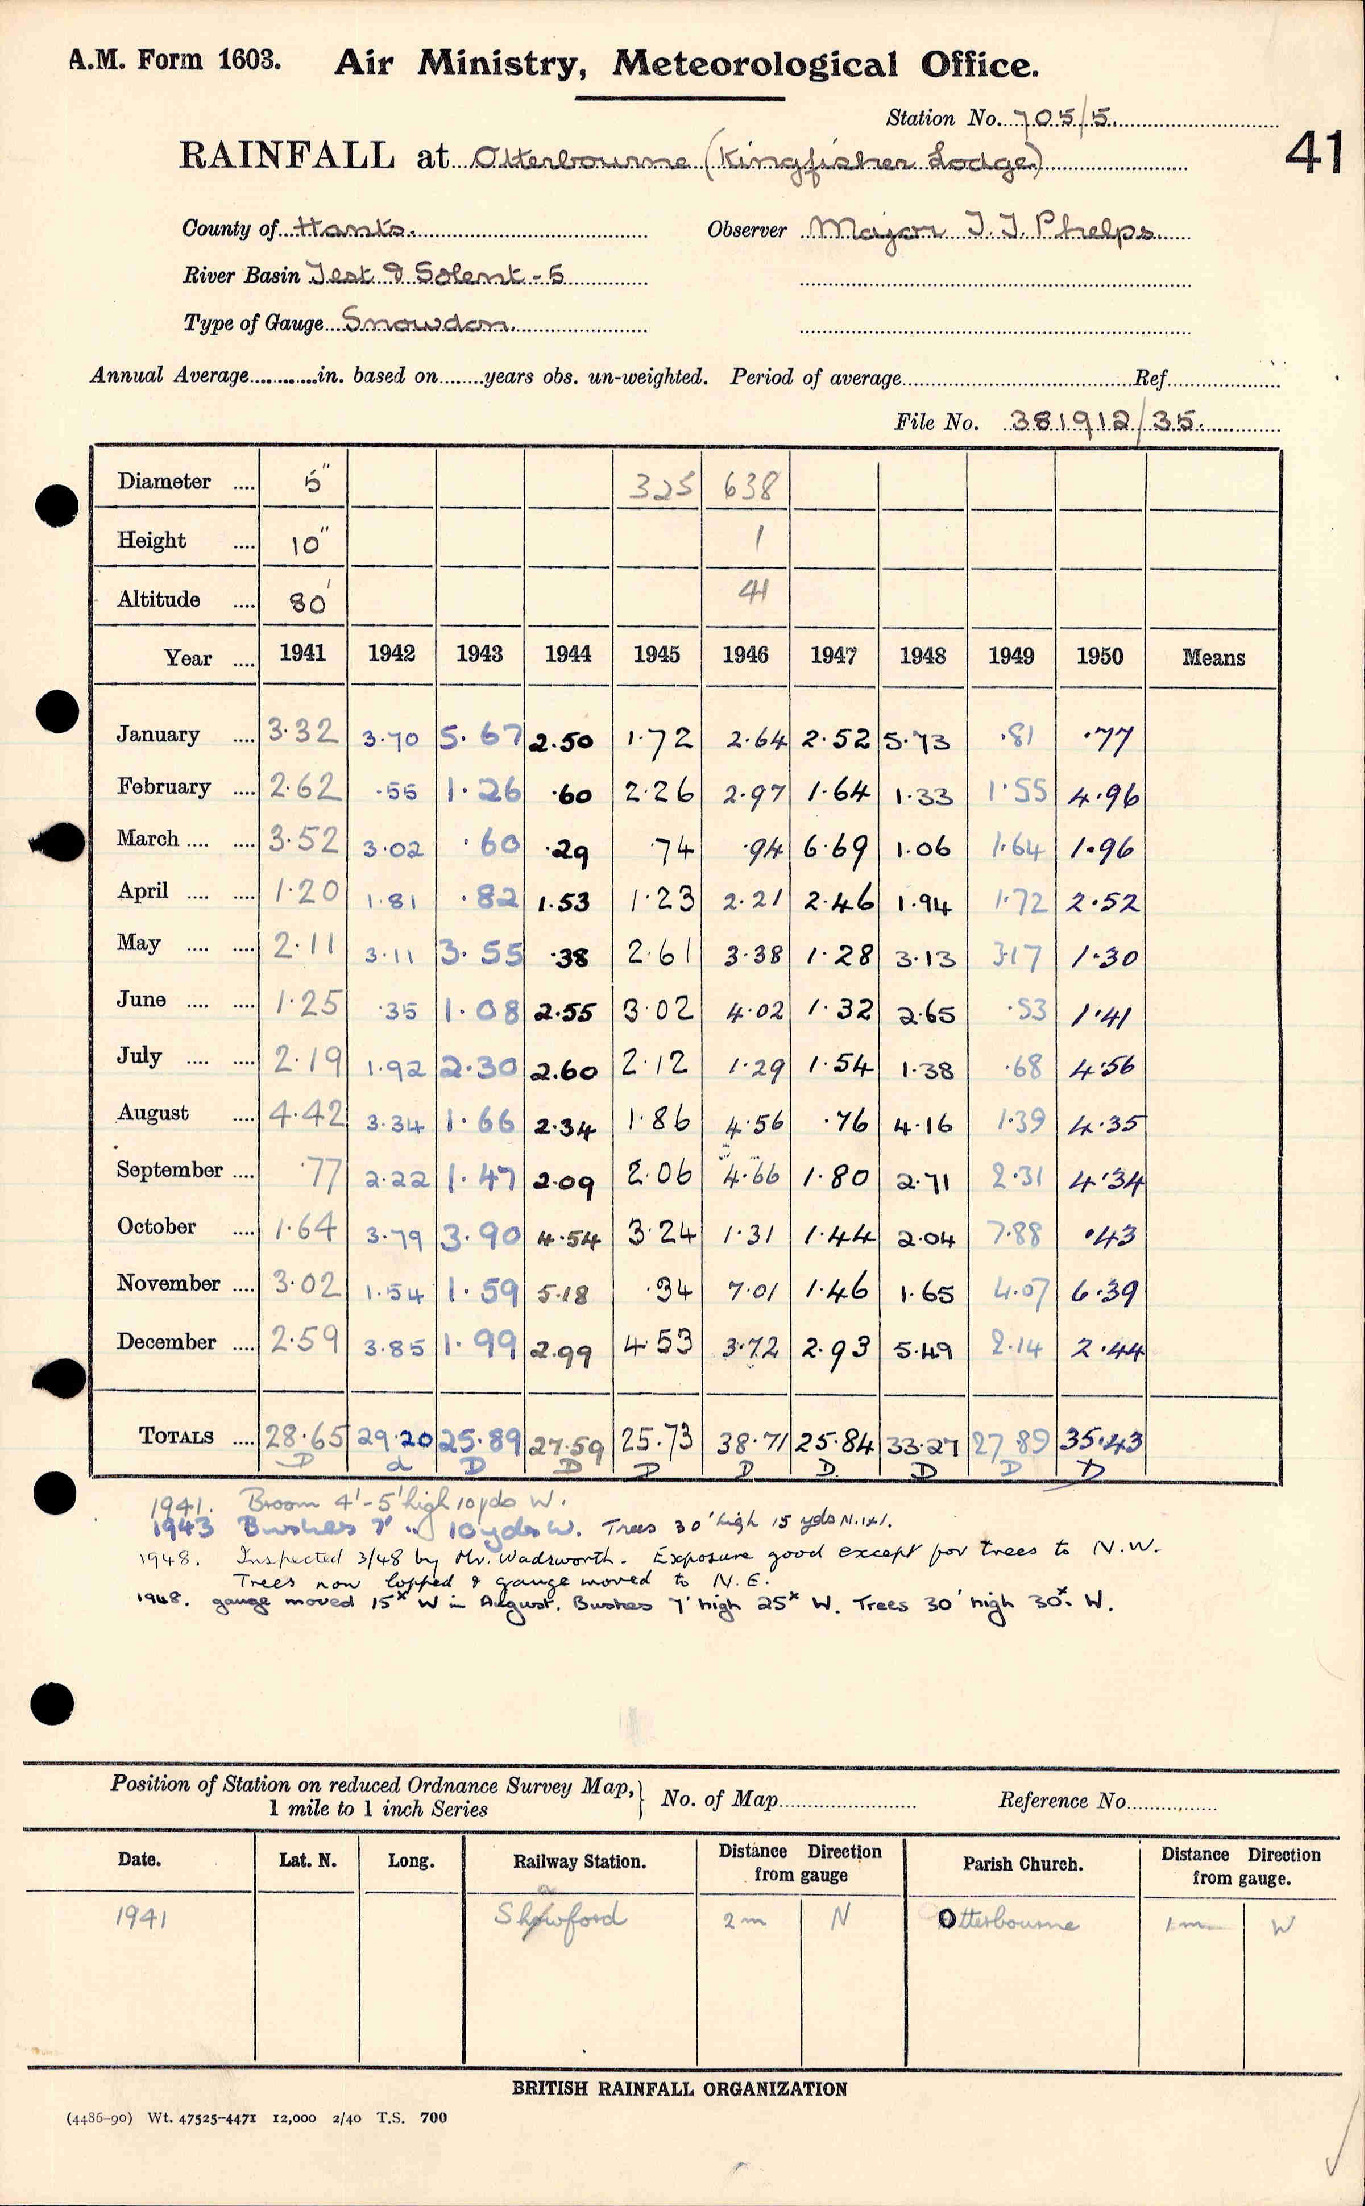 A.M. Form 1603. Air Ministry, Meteorological Office.
Station No. 705/5.
41
RAINFALL at Otterbourne (Kingfisher Lodge)
County of Hants. Observer Major J. J. Phelps
River Basin Test & Solent - 5
Type of Gauge Snowdon.
Annual Average............in. based on........years obs. un-weighted. Period of average........ Ref........
File No. 381912/35.
Diameter .... 5" 325 638
Height .... 10" 1
Altitude .... 80' 41
Year .... 1941 1942 1943 1944 1945 1946 1947 1948 1949 1950 Means
January .... 3.32 3.70 5.67 2.50 1.72 2.64 2.52 5.73 .81 .77
February .... 2.62 .55 1.26 .60 2.26 2.97 1.64 1.33 1.55 4.96
March .... .... 3.52 3.02 .60 .29 .74 .94 6.69 1.06 1.64 1.96
April .... .... 1.20 1.81 .82 1.53 1.23 2.21 2.46 1.94 1.72 2.52
May .... .... 2.11 3.11 3.55 .38 2.61 3.38 1.28 3.13 3.17 1.30
June .... .... 1.25 .35 1.08 2.55 3.02 4.02 1.32 2.65 .53 1.41
July .... .... 2.19 1.92 2.30 2.60 2.12 1.29 1.54 1.38 .68 4.56
August .... 4.42 3.34 1.66 2.34 1.86 4.56 .76 4.16 1.39 4.35
September .... .77 2.22 1.47 2.09 2.06 4.66 1.80 2.71 2.31 4.34
October .... 1.64 3.79 3.90 4.54 3.24 1.31 1.44 2.04 7.88 .43
November .... 3.02 1.54 1.59 5.18 .34 7.01 1.46 1.65 4.07 6.39
December .... 2.59 3.85 1.99 2.99 4.53 3.72 2.93 5.49 2.14 2.44
TOTALS .... 28.65 29.20 25.89 27.59 25.73 38.71 25.84 33.27 27.89 35.43
D d D D D D D. D D D
1941. Broom 4'-5' high 10 yds W.
1943 Bushes 7' " 10 yds W. Trees 30' high 15 yds N.W.
1948. Inspected 3/48 by Mr. Wadsworth. Exposure good except for trees to N.W.
Trees now lopped & gauge moved to N.E.
1948. gauge moved 15x W in August. Bushes 7' high 25x W. Trees 30' high 30x W.
Position of Station on reduced Ordnance Survey Map, 1 mile to 1 inch Series } No. of Map........ Reference No........
Date. Lat. N. Long. Railway Station. Distance Direction from gauge Parish Church. Distance Direction from gauge.
1941 Shawford 2 m N Otterbourne 1 m W
BRITISH RAINFALL ORGANIZATION
(4486-90) Wt. 47525-4471 12,000 2/40 T.S. 700